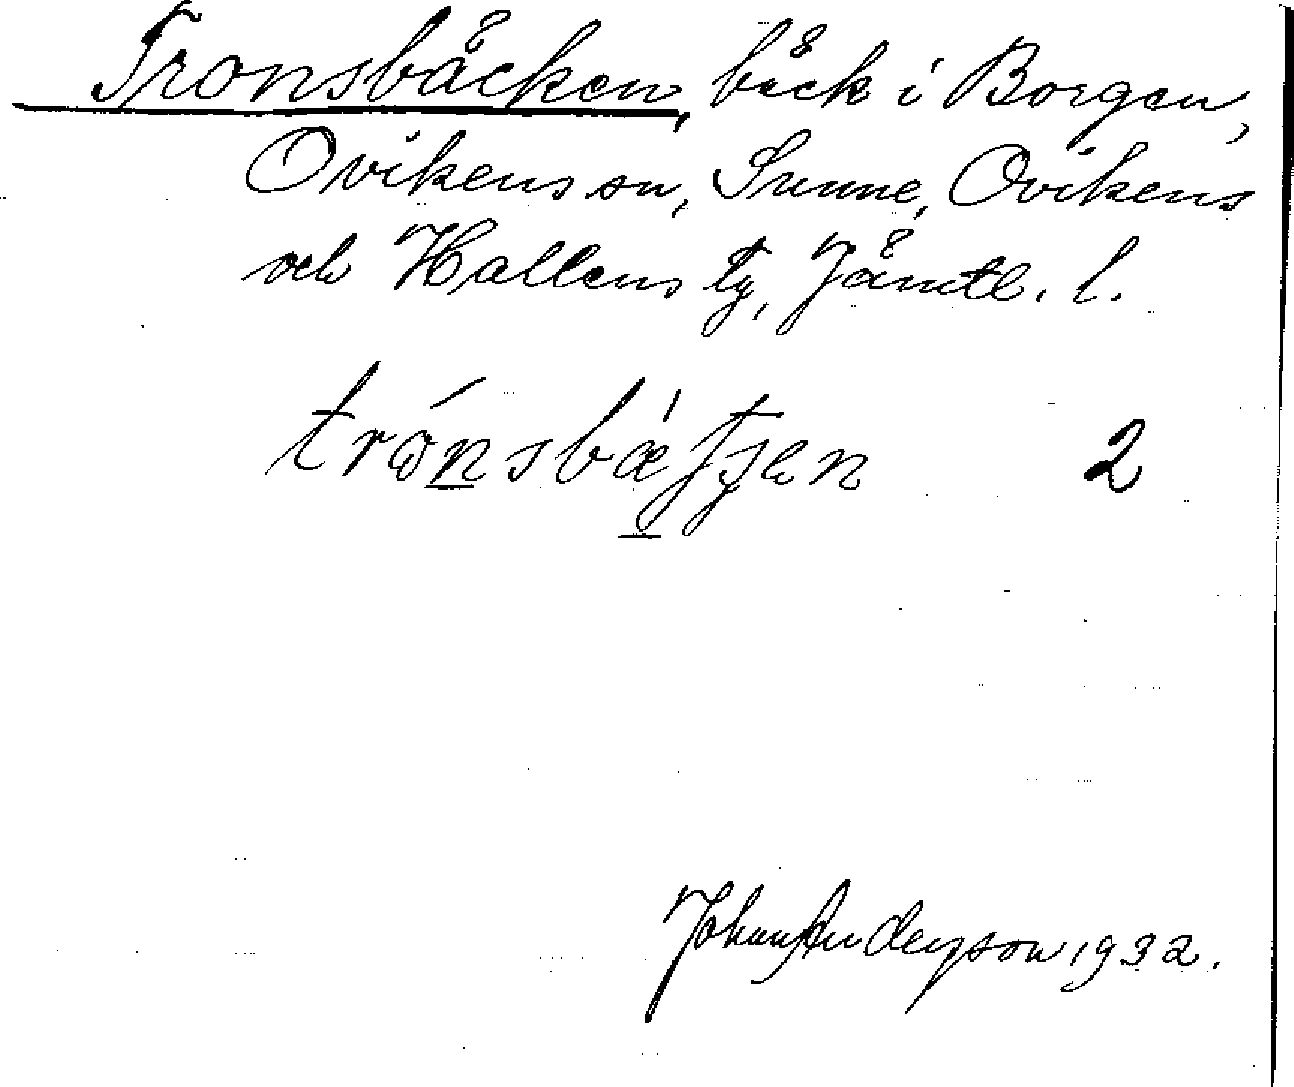 Tronsbäcken, bäck i Borgen,
Ovikens sn, Sunne, Ovikens
och Hallens tg, Jämtl. l.
2
Johan Anderson 1932.